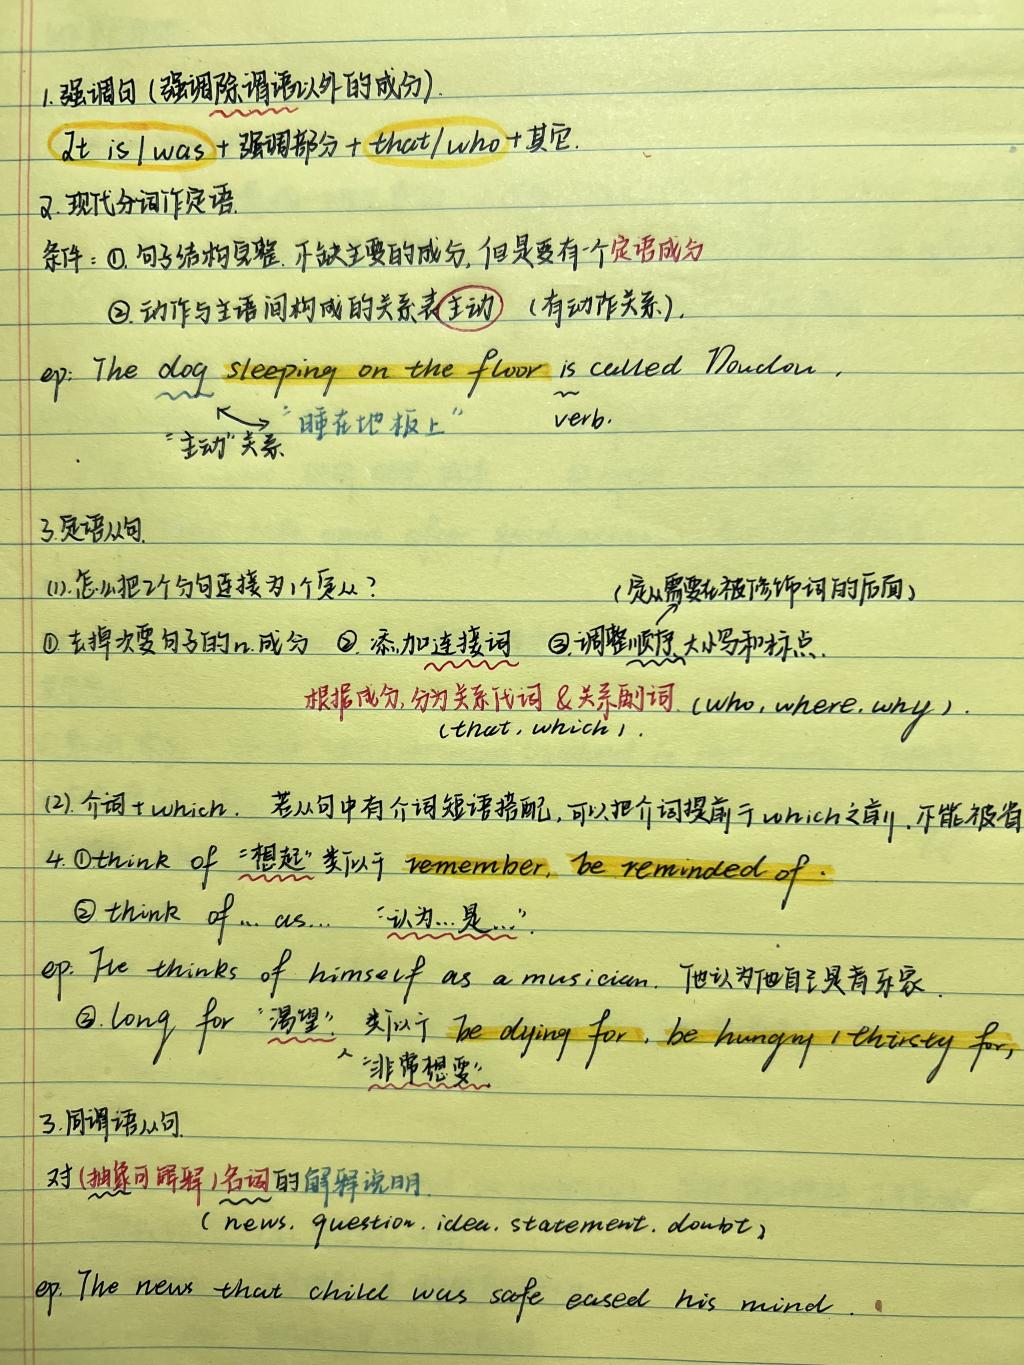 1.强调句(强调除谓语以外的成分).
It is/was+强调部分+that/who+其它.
2.现代分词作定语.
条件:①.句子结构完整.不缺主要的成分,但是要有一个定语成分
②.动作与主语间构成的关系表主动 (有动作关系).
ep: The dog sleeping on the floor is called Doudou.
"睡在地板上" verb.
"主动"关系
3.定语从句.
(1).怎么把2个分句连接为1个定从?
(定从需要在被修饰词的后面)
①去掉次要句子的n.成分 ②.添加连接词 ③.调整顺序,大小写和标点.
根据成分,分为关系代词&关系副词.(who,where,why).
(that,which).
(2).介词+which. 若从句中有介词短语搭配,可以把介词提前于which之前,不能被省
4.①think of "想起"类似于 remember, be reminded of.
②think of... as... "认为...是...".
ep. He thinks of himself as a musician. 他认为他自己是音乐家.
③.long for "渴望". 类似于 be dying for, be hungry/thirsty for,
^"非常想要".
3.同谓语从句.
对(抽象可解释)名词的解释说明.
(news.question.idea.statement.doubt)
ep. The news that child was safe eased his mind.